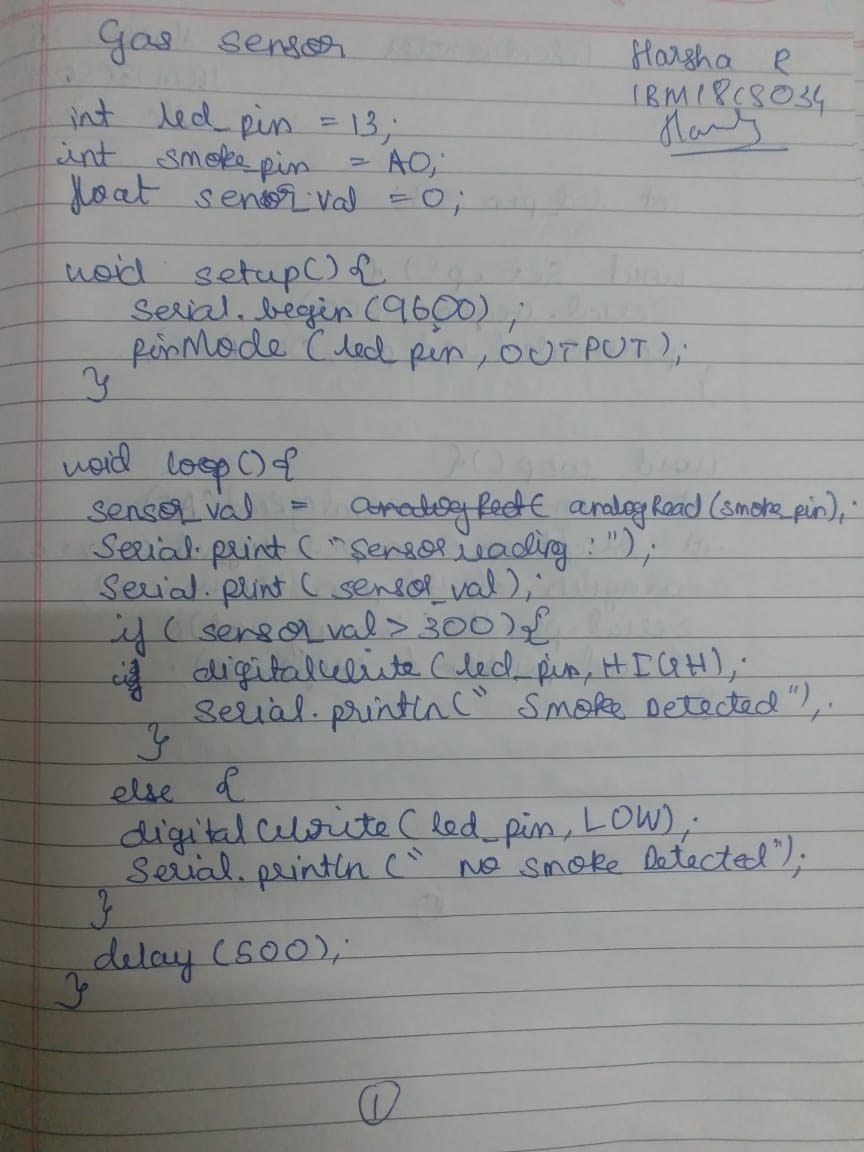 Gas sensor
Harsha R
1BM18CS034
int led_pin = 13;
int smoke_pin = A0;
float sensor_val = 0;
void setup() {
Serial.begin(9600);
pinMode (led_pin, OUTPUT);
}
void loop() {
sensor_val = analogRead(smoke_pin);
Serial.print ("Sensor reading :");
Serial.print (sensor_val);
if (sensor_val > 300) {
digitalWrite (led_pin, HIGH);
Serial.println (" Smoke Detected");
}
else {
digitalWrite (led_pin, LOW);
Serial.println (" No Smoke Detected");
}
delay (500);
}
1